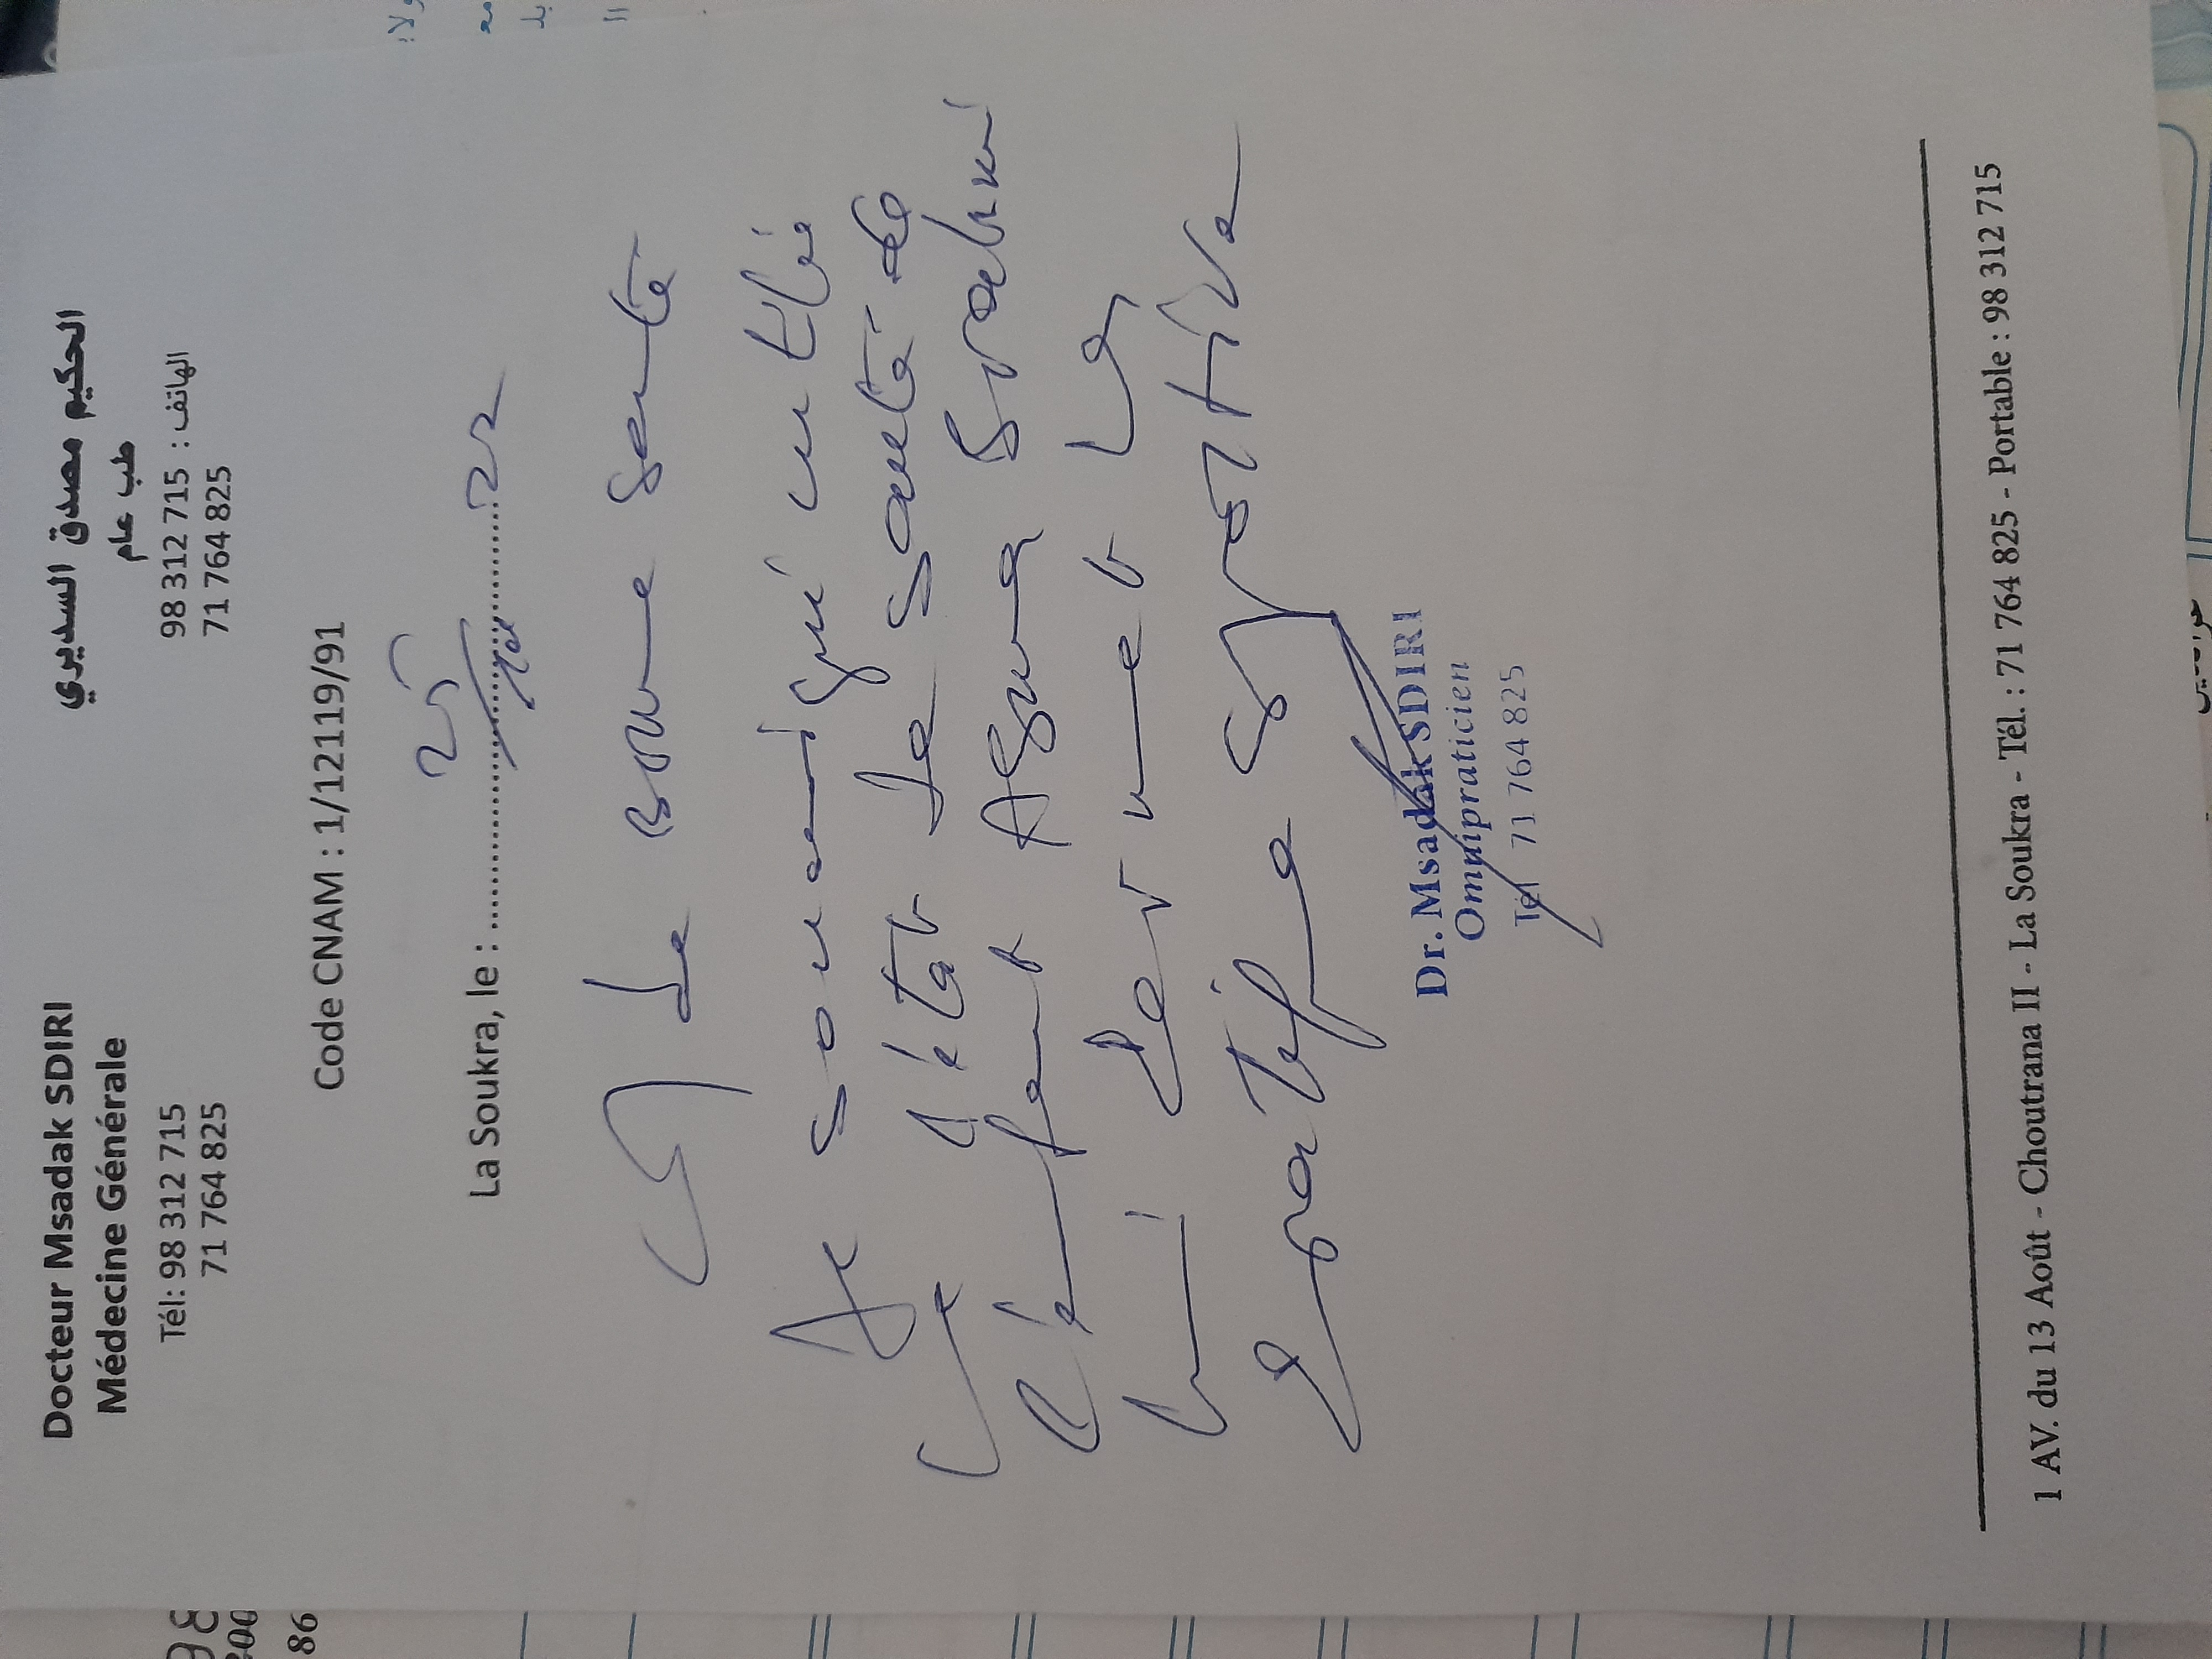 Docteur Msadak SDIRI
Médecine Générale
Tél: 98 312 715
71 764 825
الحكيم مصدق السديري
طب عام
الهاتف : 715 312 98
71 764 825
Code CNAM : 1/12119/91
La Soukra, le : 25/ 22
de Bonne Santé
Je soussigné certifie
que l'état de santé de
l'enfant
lui permet la
pratique sportive
Dr. Msadak SDIRI
Omnipraticien
Tél 71 764 825
1 AV. du 13 Août - Choutrana II - La Soukra - Tél. : 71 764 825 - Portable : 98 312 715
86